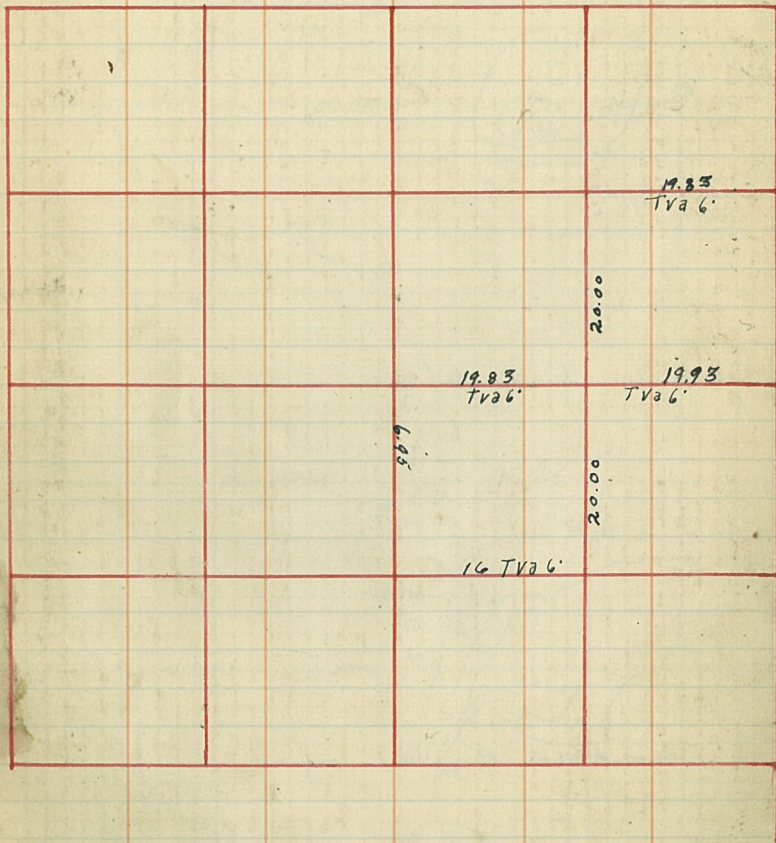 19.83
Tva 6·
20.00
19.83
Tva 6·
19.93
Tva 6·
20.00
16 Tva 6·